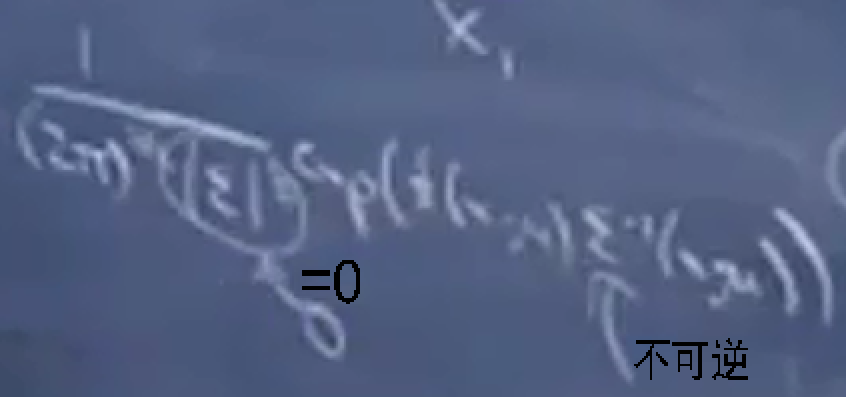 x₁
1
(2π)ⁿᐟ² |Σ|^½ exp(½(x-μ)Σ⁻¹(x-μ))
=0
0
不可逆